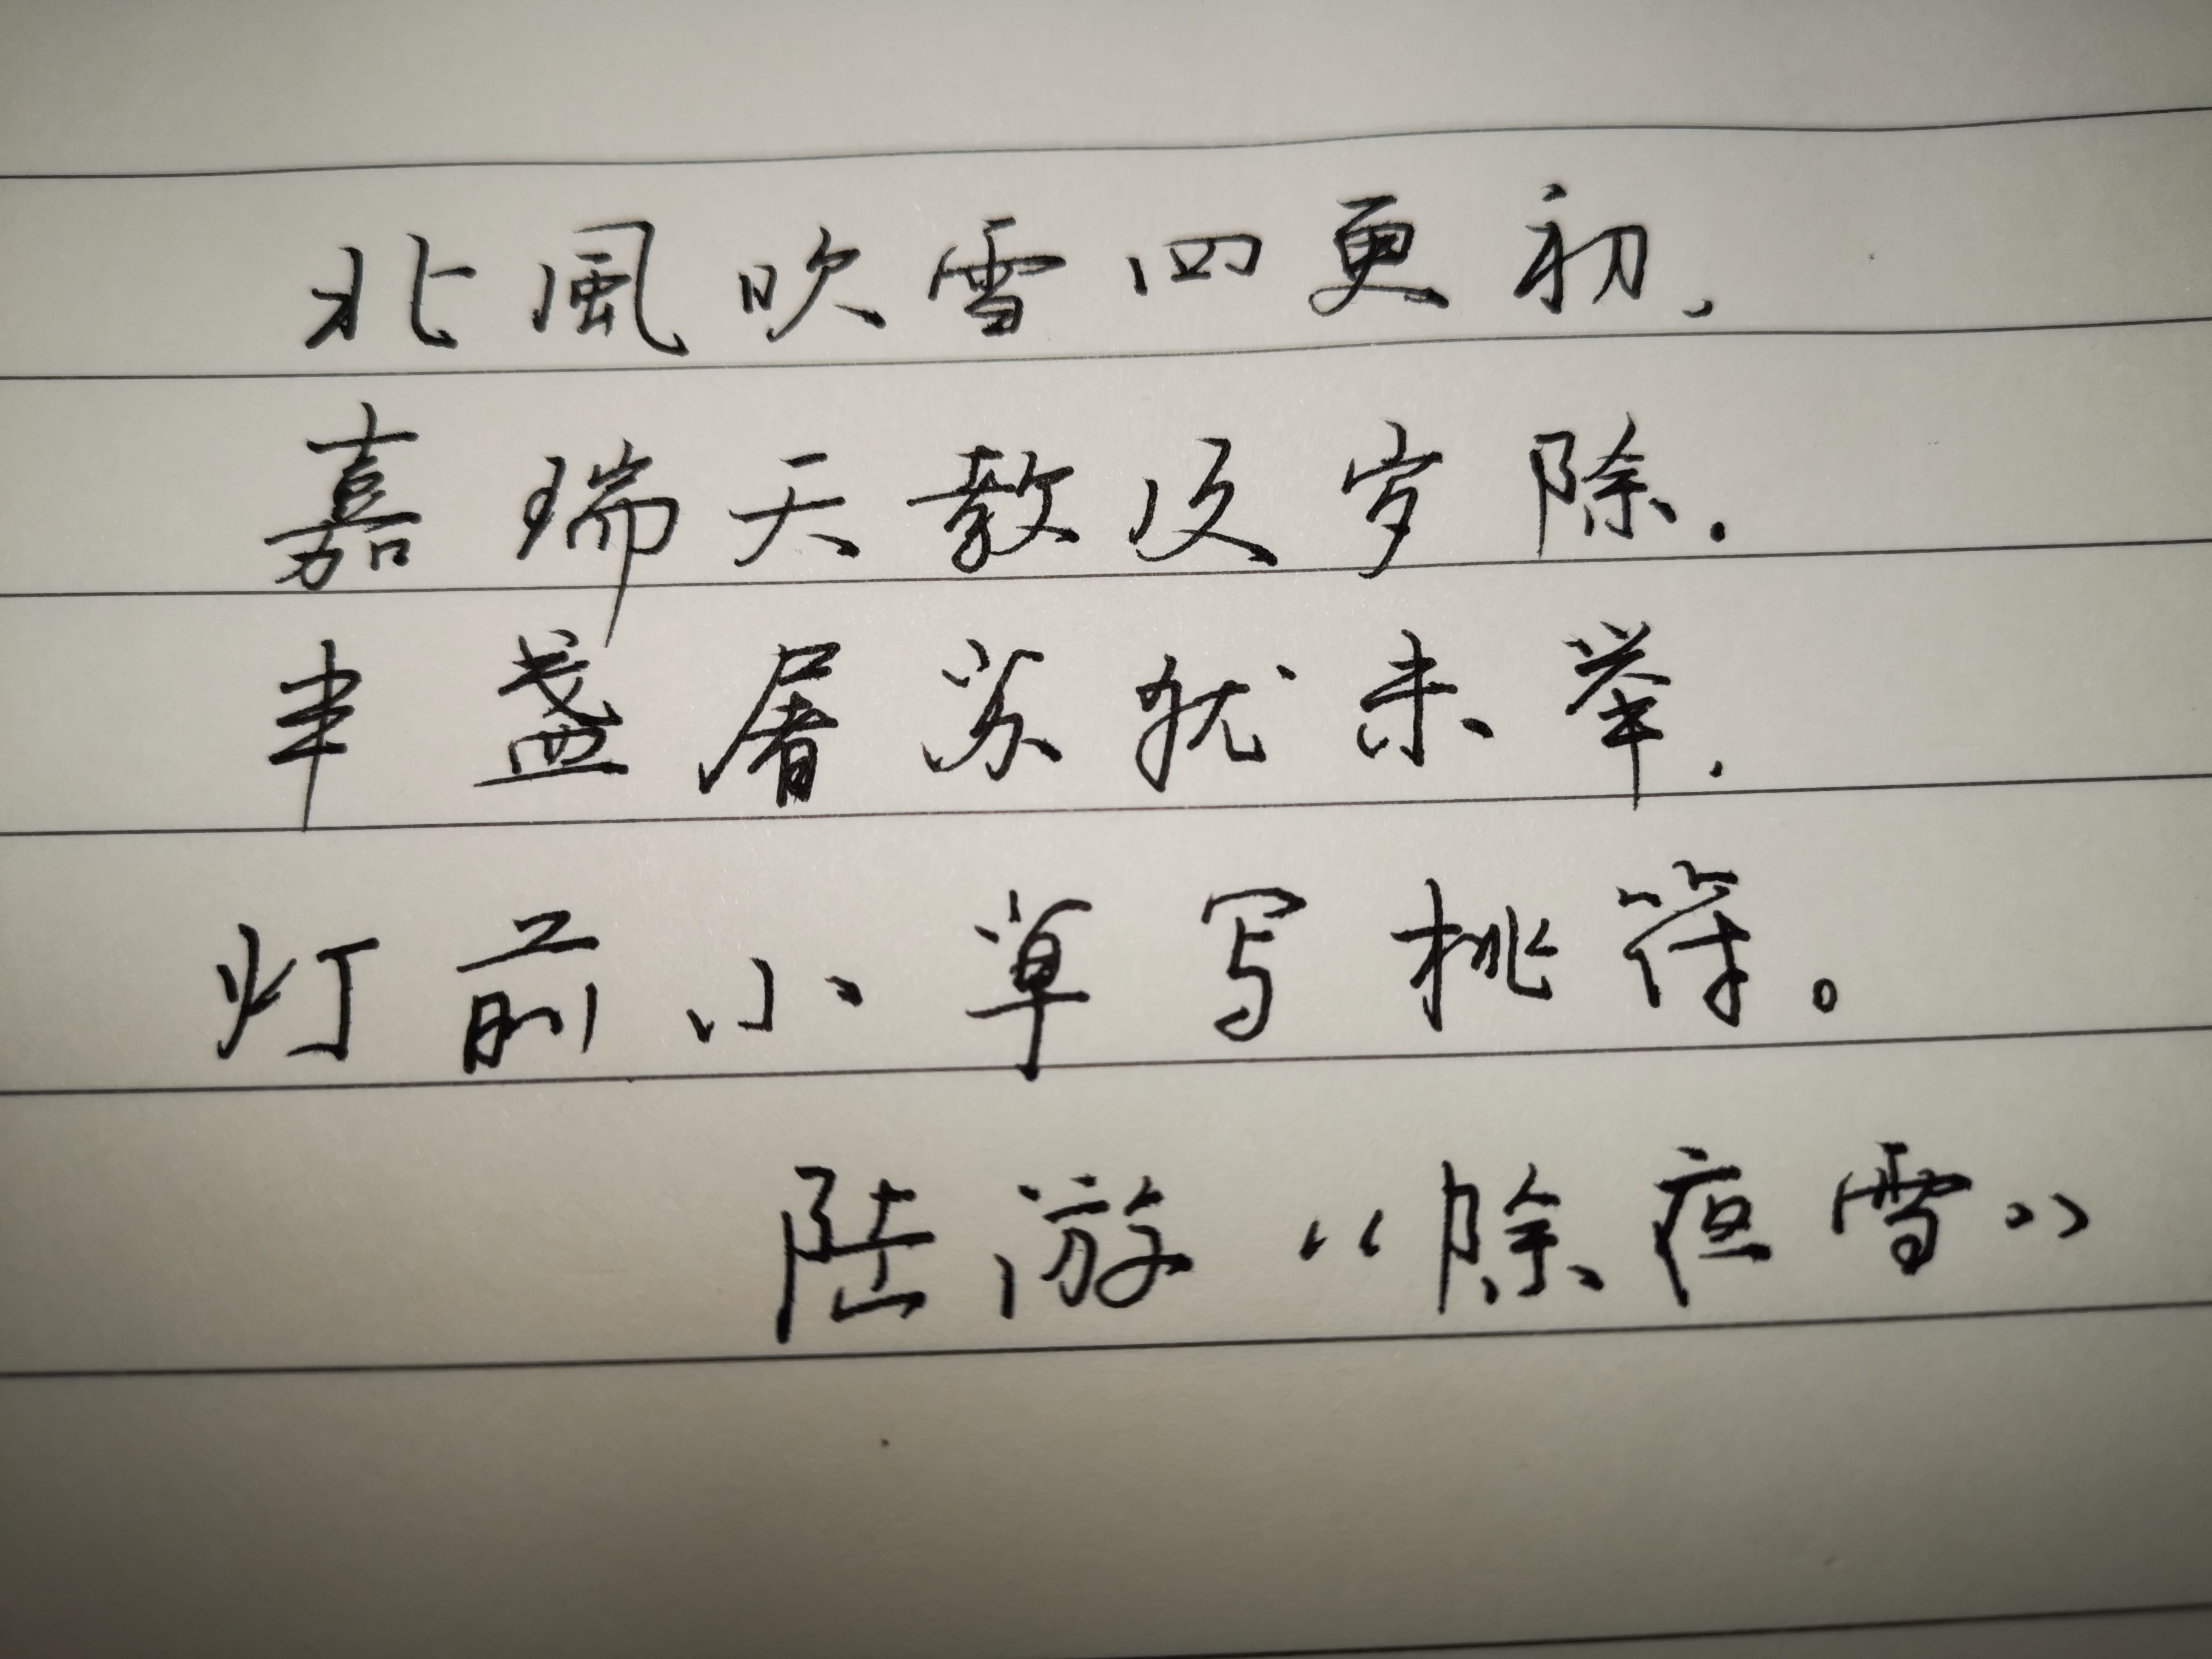 北風吹雪四更初，
嘉瑞天教及岁除．
半盏屠苏犹未举．
灯前小草写桃符。
陆游“除夜雪”